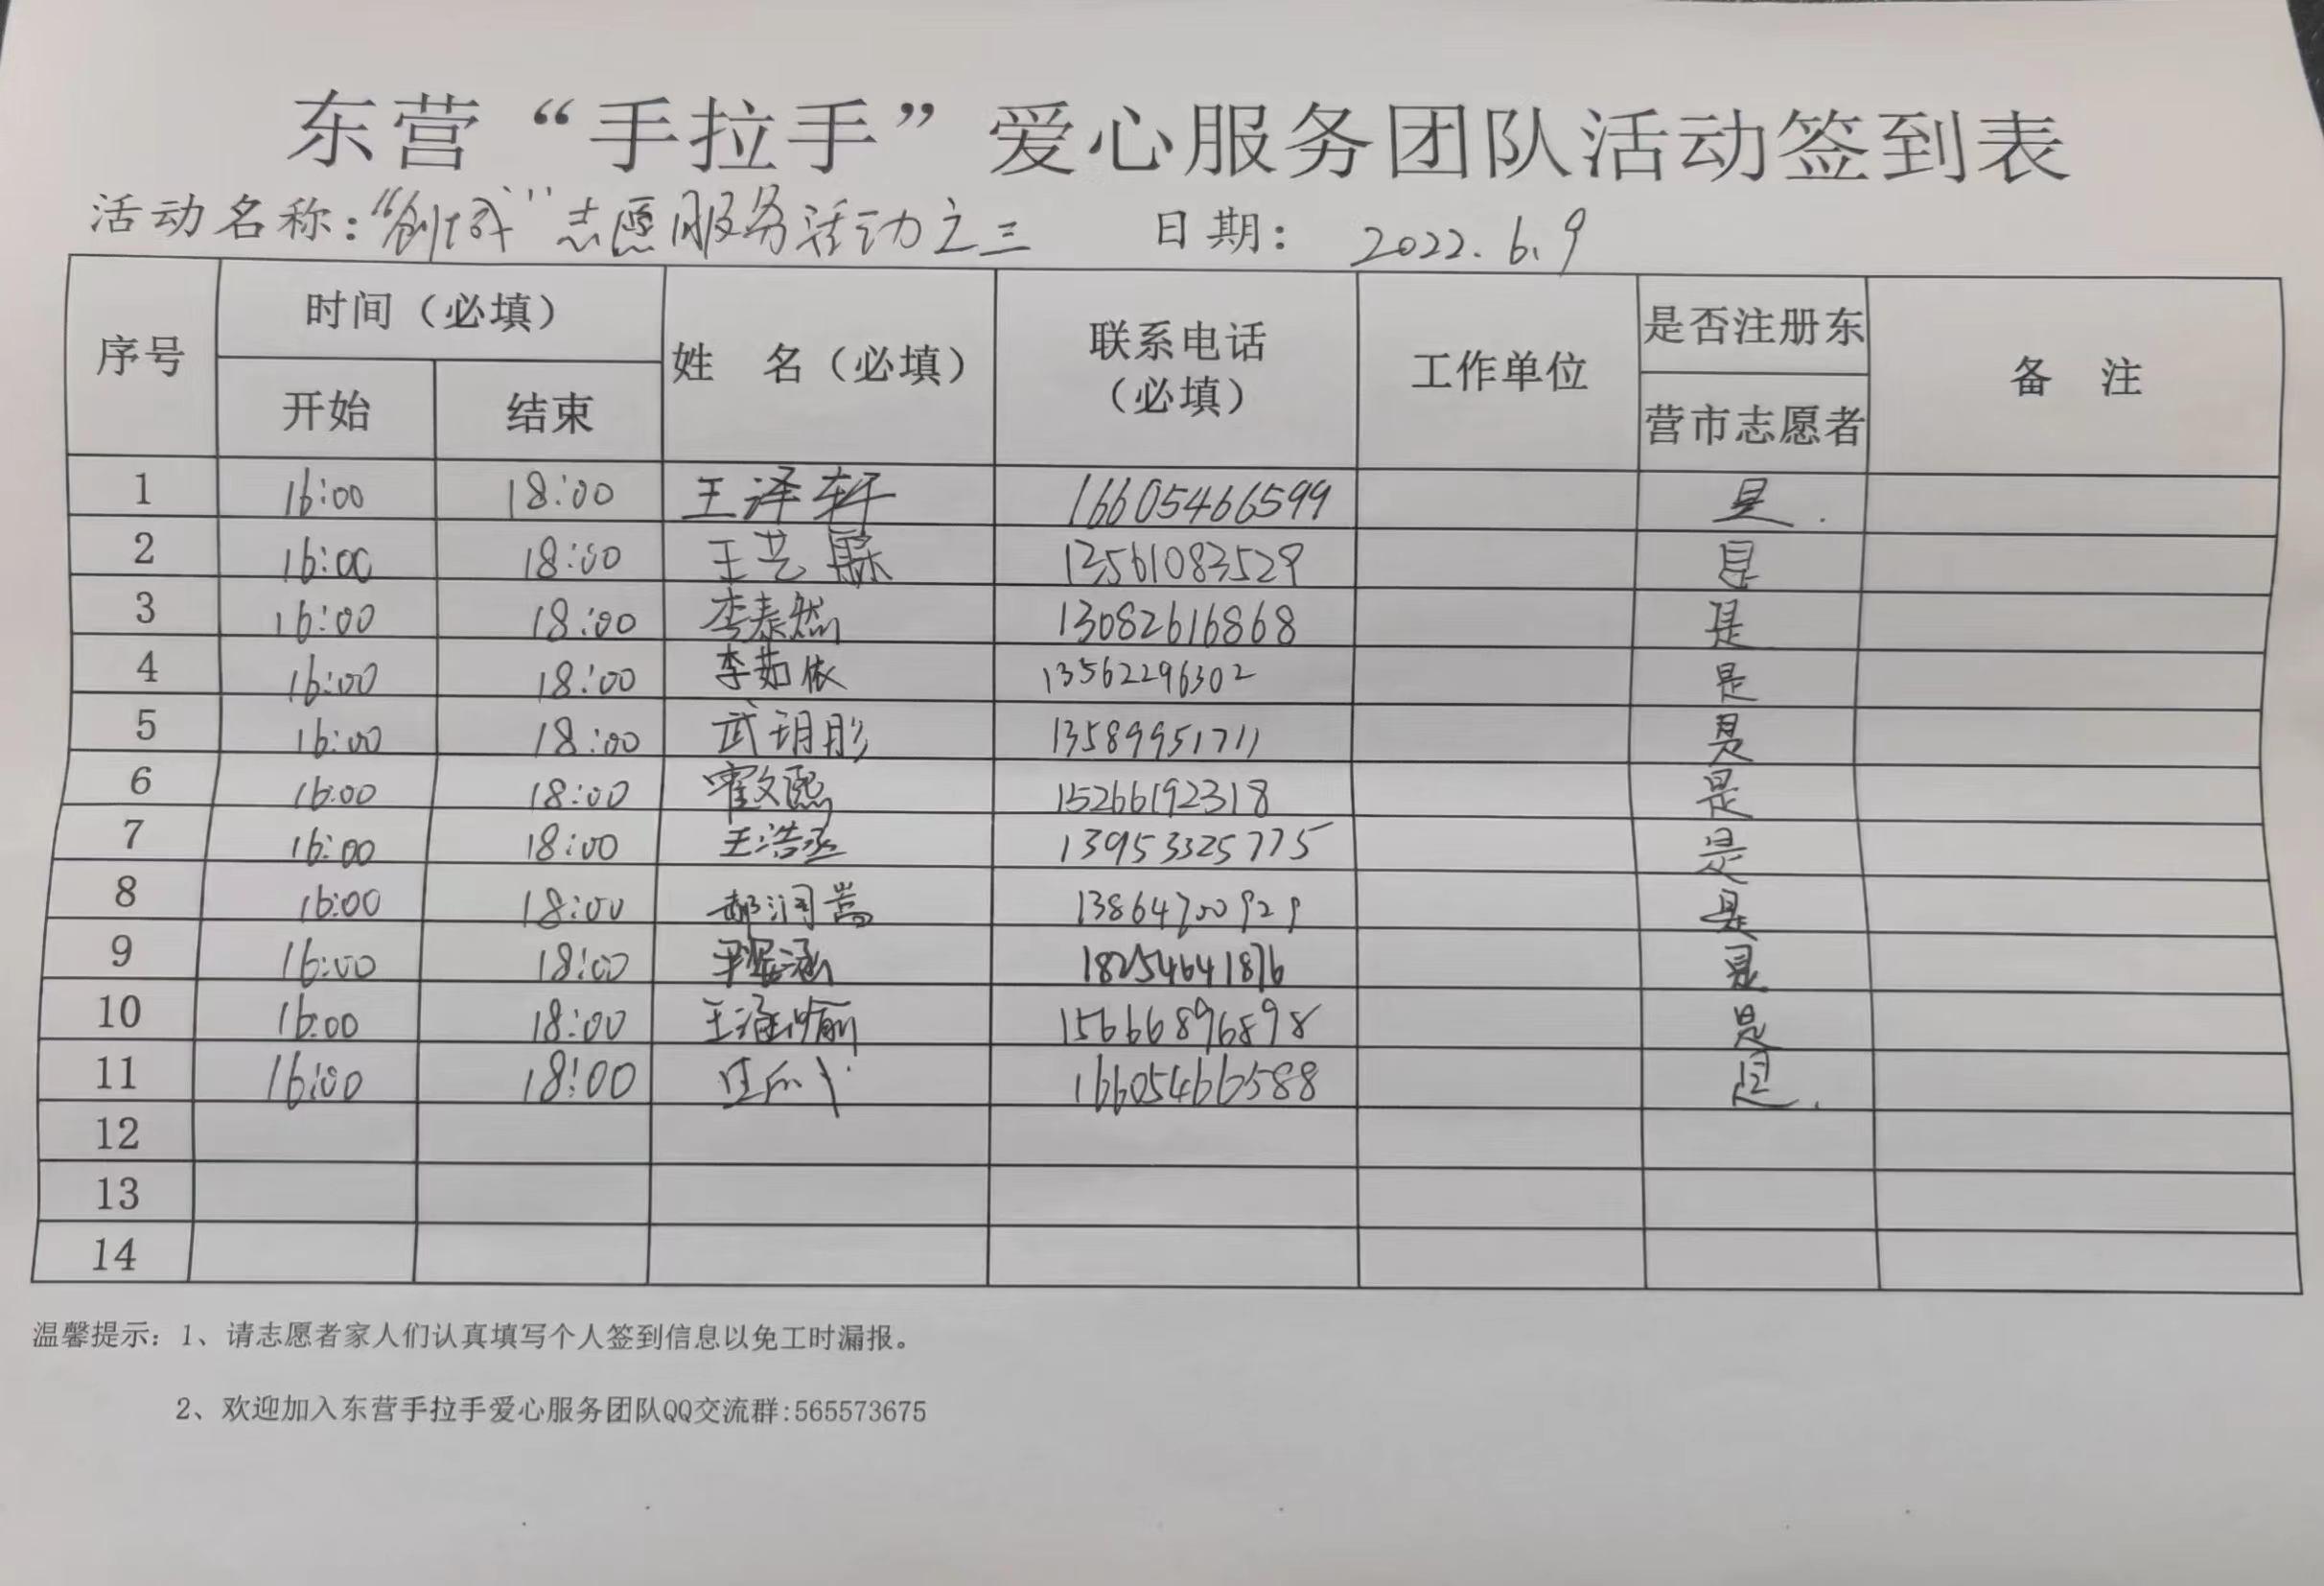 东营“手拉手”爱心服务团队活动签到表
活动名称：“创城”志愿服务活动之三 日期： 2022.6.9
序号 时间（必填） 姓 名（必填） 联系电话（必填） 工作单位 是否注册东营市志愿者 备 注
开始 结束
1 16:00 18:00 王泽轩 16605466599 是.
2 16:00 18:00 王艺 13561083529 是
3 16:00 18:00 李泰然 13082616868 是
4 16:00 18:00 李茹依 13562296302 是
5 16:00 18:00 武玥彤 13589951711 是
6 16:00 18:00 霍文熙 15266192318 是
7 16:00 18:00 王浩丞 13953325775 是
8 16:00 18:00 郝润嵩 13864700929 是
9 16:00 18:00 18254641876 是
10 16:00 18:00 王涵 15666896898 是
11 16:00 18:00 16605466588 是.
12
13
14
温馨提示：1、请志愿者家人们认真填写个人签到信息以免工时漏报。
2、欢迎加入东营手拉手爱心服务团队QQ交流群:565573675